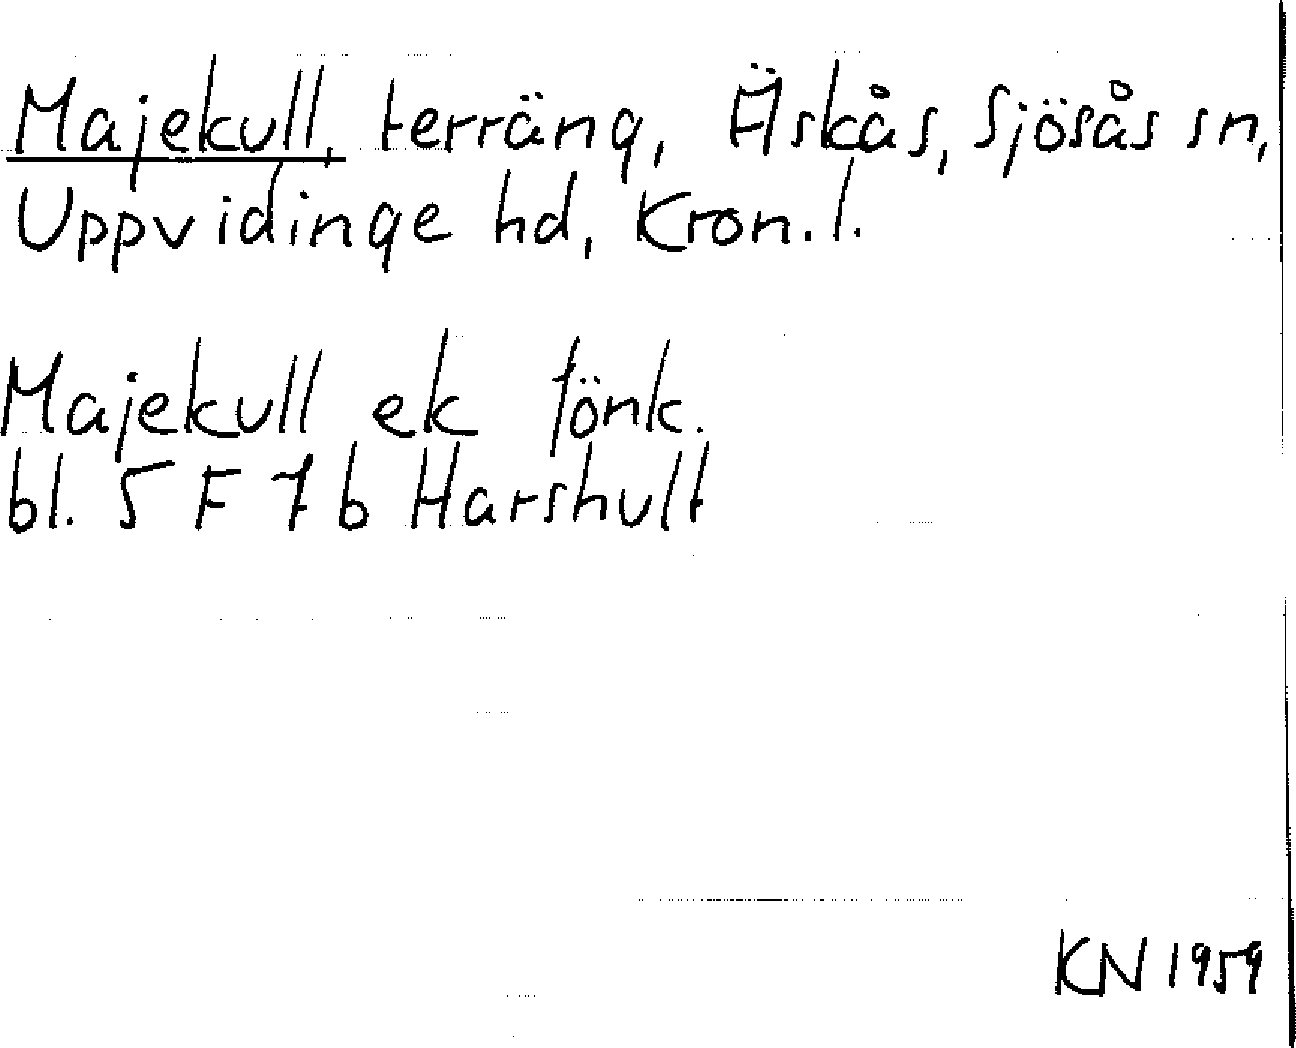 Majekull, terräng, Äskås, Sjösås sn,
Uppvidinge hd, Kron. l.
Majekull ek fönk.
bl. 5 F 7 b Harshult
KN 1959